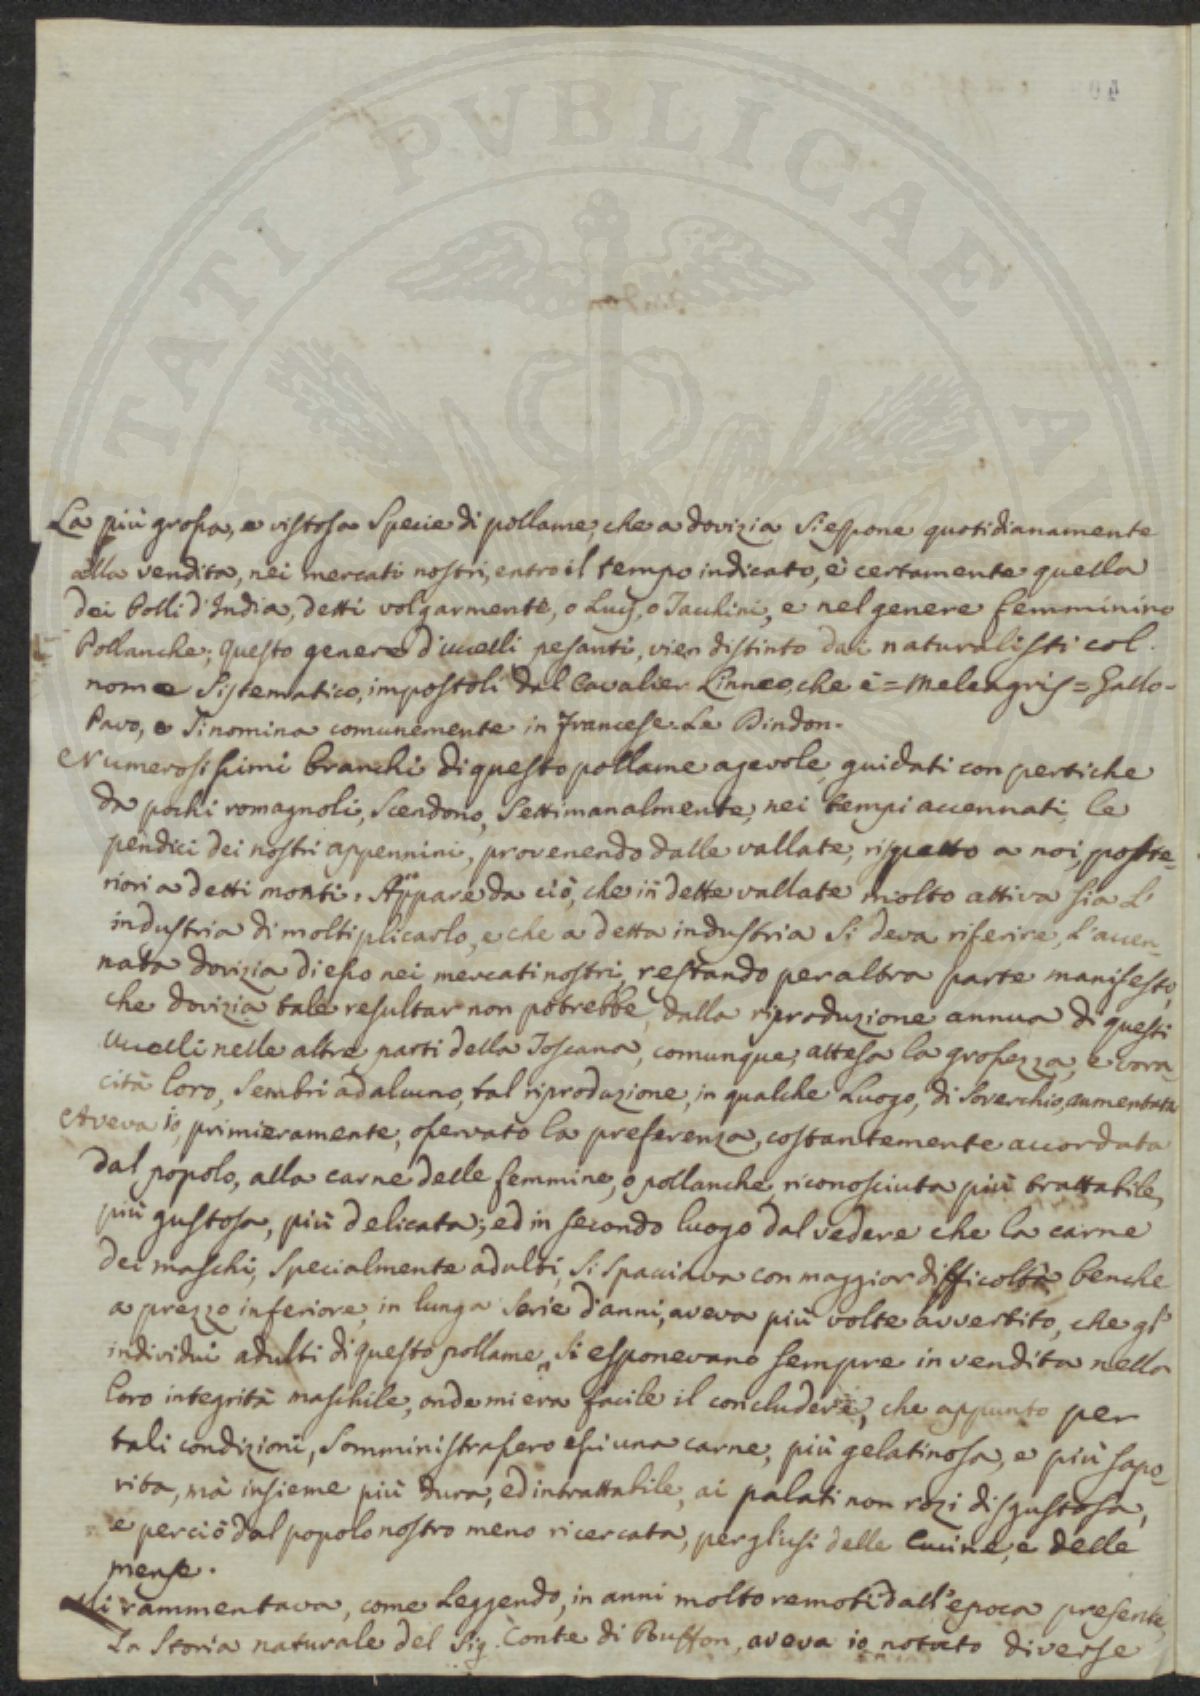 PROSPERITATI PVBLICAE AV
La più grossa, e vistosa Specie di pollame, che a dovizia si espone quotidianamente
alla vendita, nei mercati nostri, entro il tempo indicato, è certamente quella
dei Polli d'India, detti volgarmente, o Lucj, o Tacchini, e nel genere femminino
Pollanche; Questo genere d'uccelli pesanti, vien distinto dai naturalisti col
nome Sistematico, impostoli dal Cavalier Linneo, che è = Meleagris = Gallo-
Pavo, e Si nomina comunemente in Francese Le Dindon.
Numerosissimi branchi di questo pollame agevole, guidati con pertiche
da pochi romagnoli, Scendono, Settimanalmente, nei tempi accennati, le
pendici dei nostri appennini, provenendo dalle vallate, rispetto a noi, poste-
riori a detti monti. Appare da ciò, che in dette vallate molto attiva sia L'
industria di moltiplicarlo, e che a detta industria Si deva riferire, L'accen-
nata dovizia di esso nei mercati nostri, restando per altra parte manifesto,
che dovizia tale resultar non potrebbe, dalla riproduzione annua di questi
Uccelli nelle altre parti della Toscana, comunque, attesa la grossezza, e vora-
cità loro, Sembri ad alcuno, tal riproduzione, in qualche Luogo, di Soverchio, aumentata
Aveva io, primieramente, osservato la preferenza, costantemente accordata
dal popolo, alla carne delle femmine, o pollanche, riconosciuta più trattabile,
più gustosa, più delicata; ed in secondo luogo dal vedere che la carne
dei maschi, Specialmente adulti, Si Spacciava con maggior difficoltà, benche
a prezzo inferiore, in lunga Serie d'anni, aveva più volte avvertito, che gl'
individui adulti di questo pollame, Si esponevano sempre in vendita nella
loro integrità maschile, onde mi era facile il concludere, che appunto per
tali condizioni, Somministrassero essi una carne, più gelatinosa, e più sapo-
rita, mà insieme più dura, ed intrattabile, ai palati non rozi disgustosa,
e perciò dal popolo nostro meno ricercata, per gl'usi delle Cucine, e delle
mense.
Mi rammentava, come Leggendo, in anni molto remoti dall'epoca presente,
La Storia naturale del Sig. Conte di Buffon, aveva io notato diverse